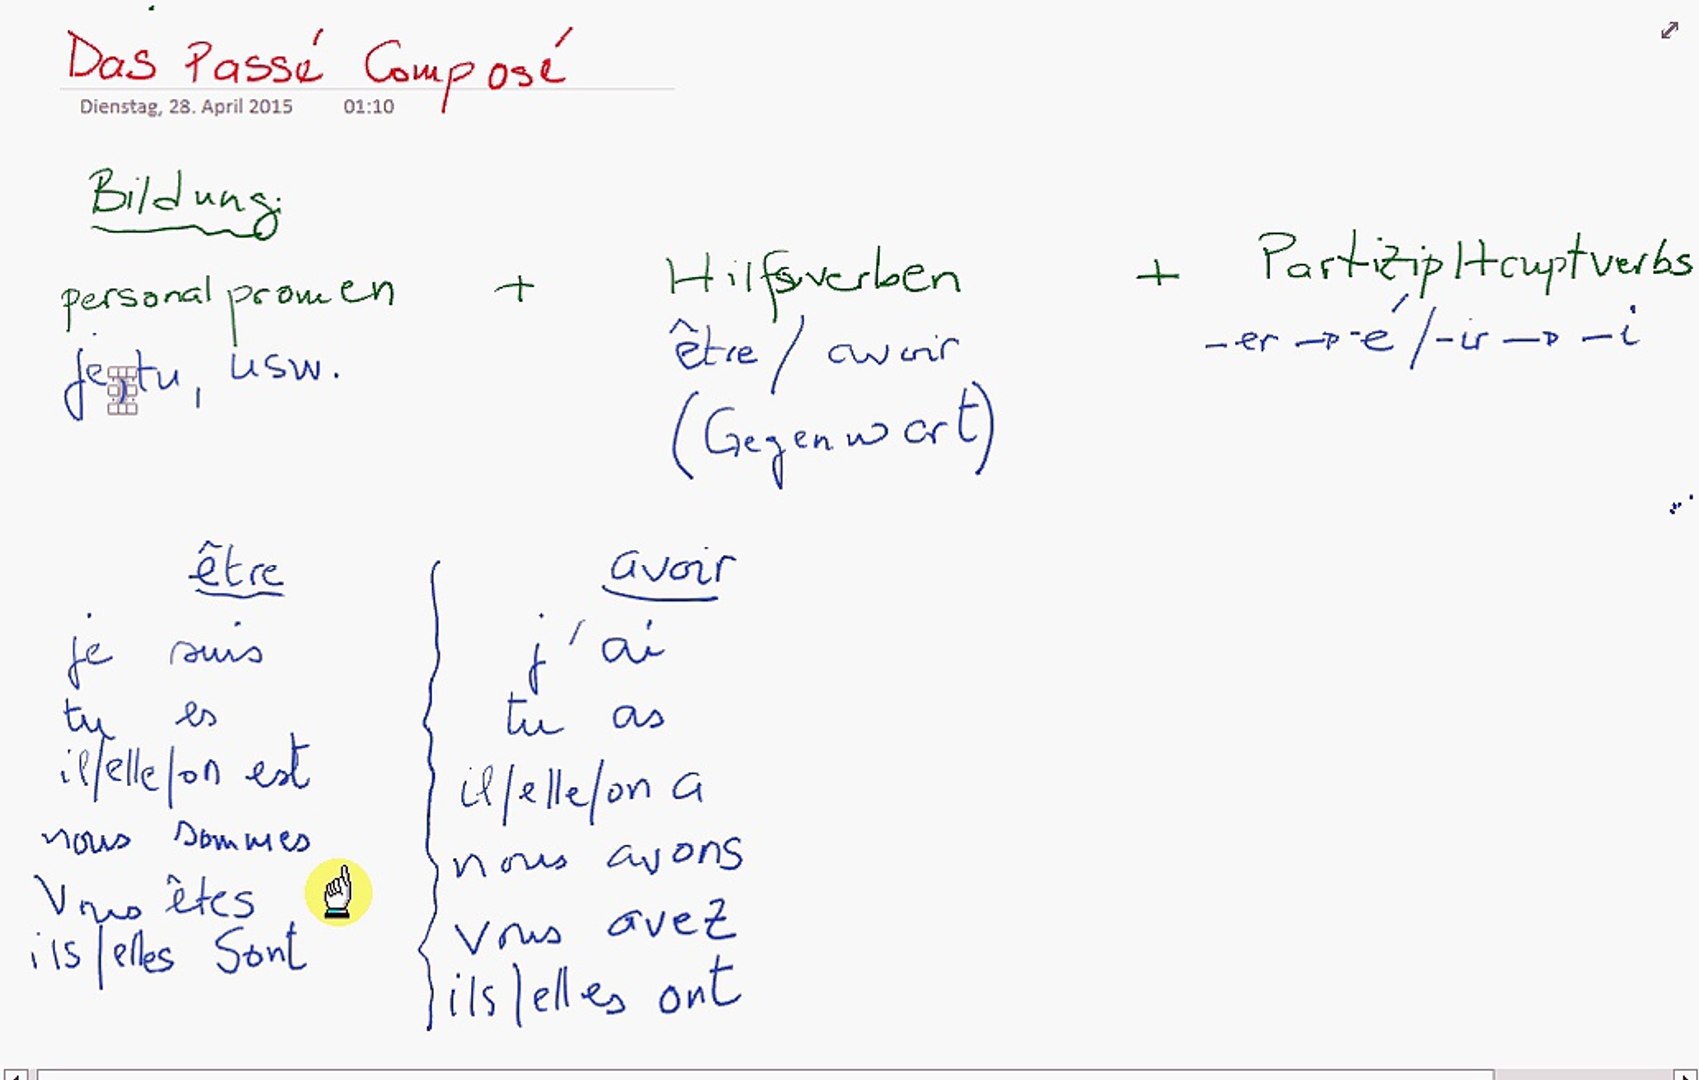 Das Passé Composé
Dienstag, 28. April 2015 01:10
Bildung:
personalpronomen + Hilfsverben + Partizip Hauptverbs
je, tu, usw. être / avoir -er → -é / -ir → -i
(Gegenwart)
être avoir
je suis j'ai
tu es tu as
il/elle/on est il/elle/on a
nous sommes nous avons
vous êtes vous avez
ils/elles sont ils/elles ont